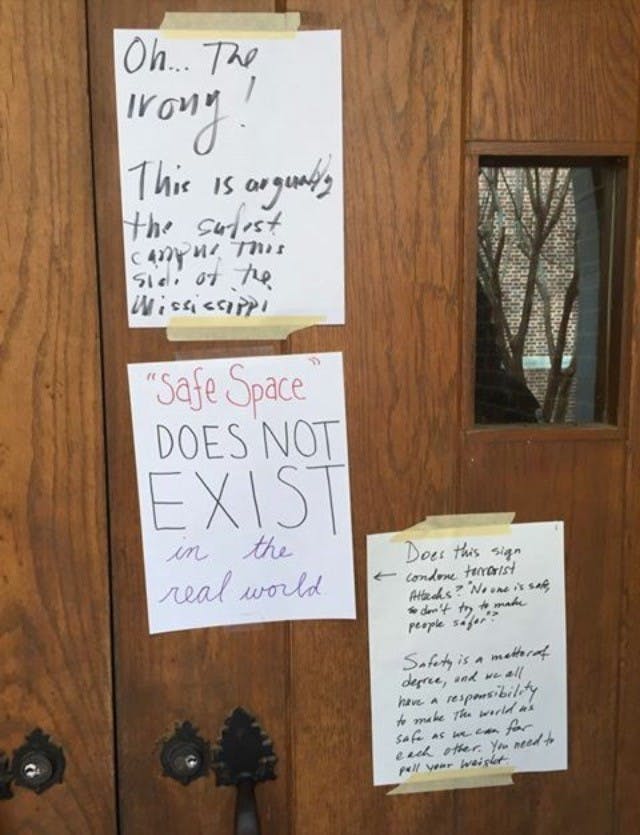 Oh... The
irony!
This is arguably
the safest
campus this
side of the
Mississippi
"Safe Space"
DOES NOT
EXIST
in the
real world
Does this sign
← condone terrorist
Attacks? "No one is safe,
so don't try to make
people safer"?
Safety is a matter of
degree, and we all
have a responsibility
to make the world as
safe as we can for
each other. You need to
pull your weight.